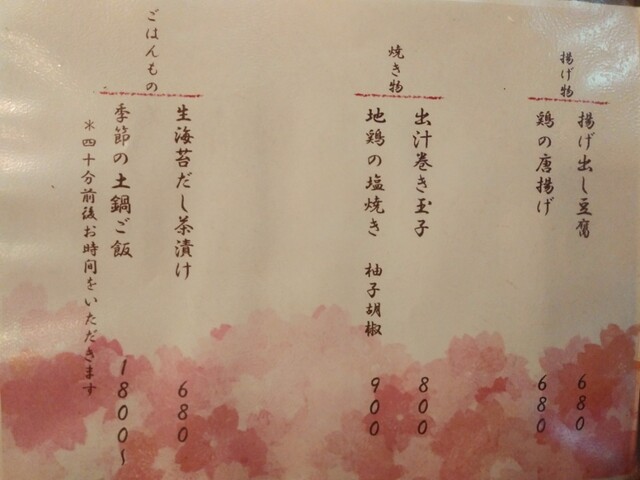 揚げ物
揚げ出し豆腐 680
鶏の唐揚げ 680
焼き物
出汁巻き玉子 800
地鶏の塩焼き 柚子胡椒 900
ごはんもの
生海苔だし茶漬け 680
季節の土鍋ご飯 1800~
※四十分前後お時間をいただきます